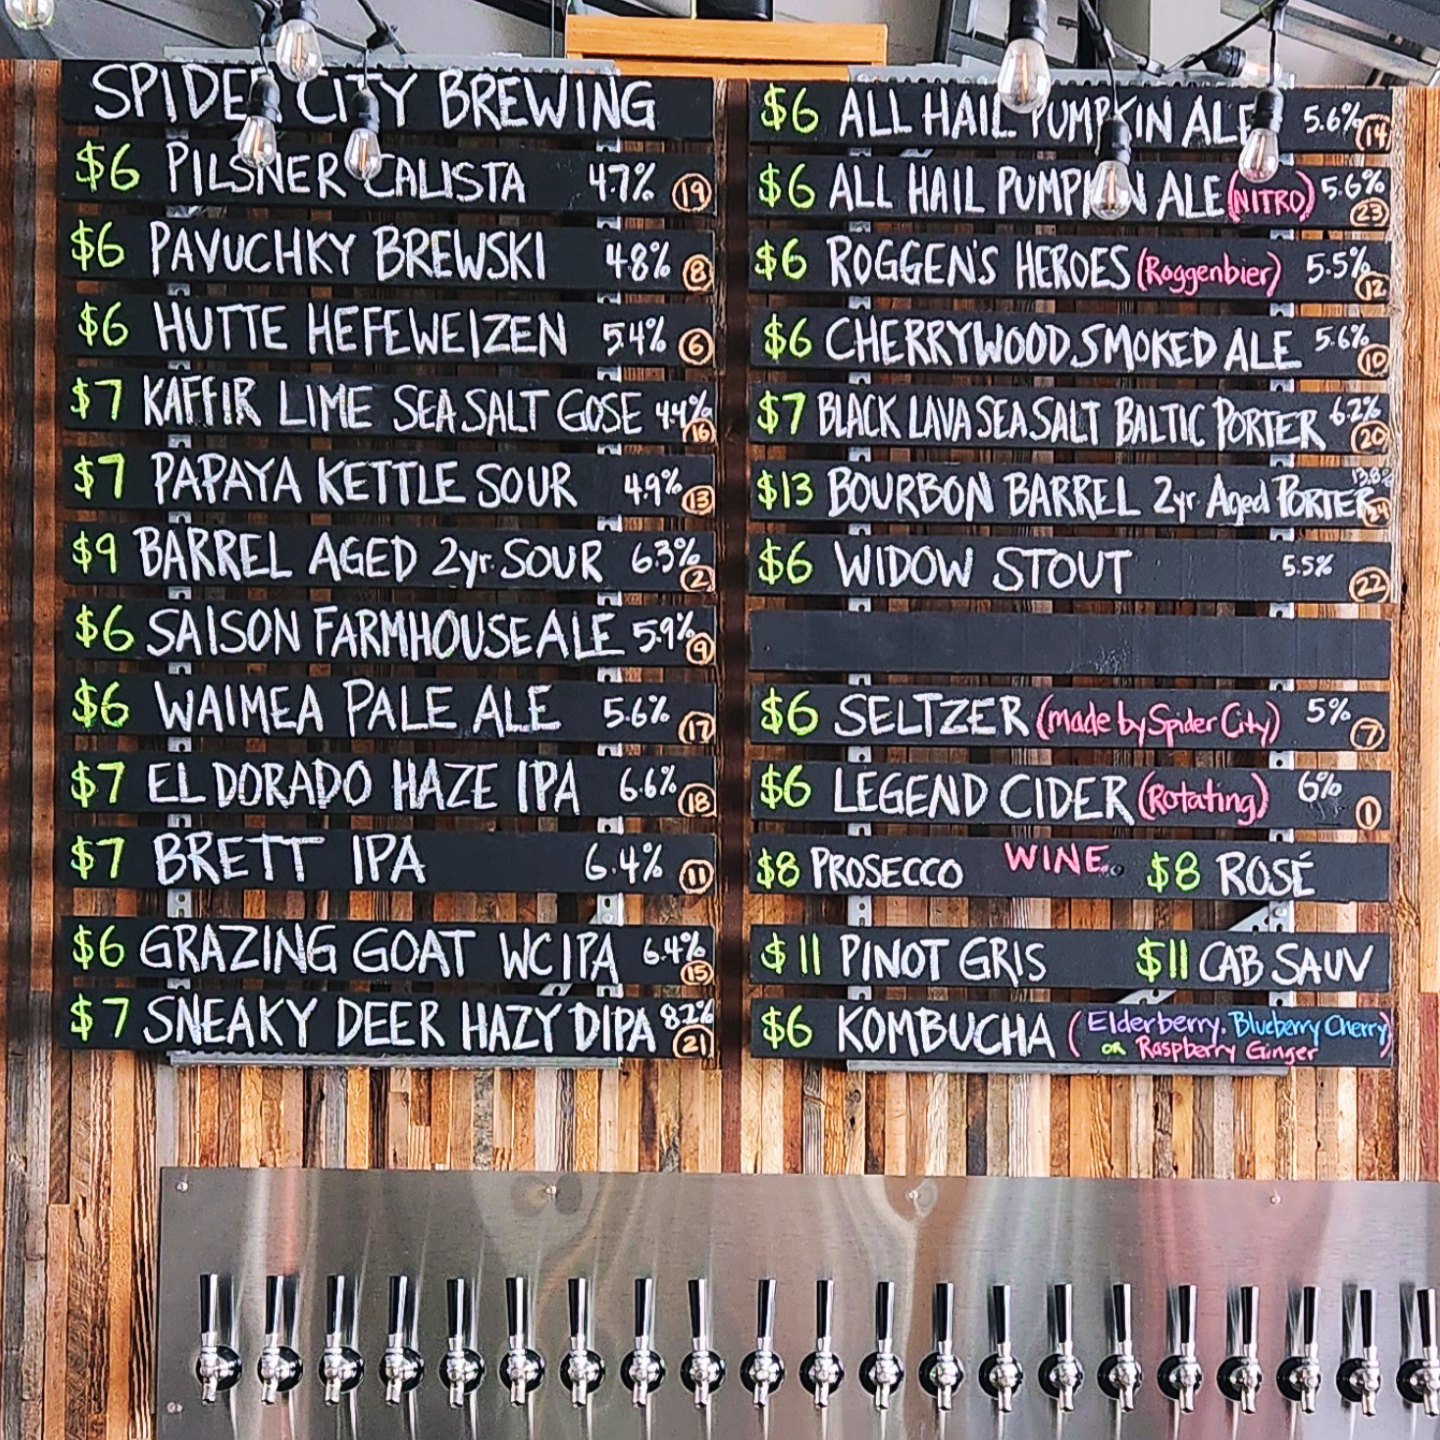 SPIDER CITY BREWING
$6 PILSNER CALISTA 4.7% 19
$6 PAVUCHKY BREWSKI 4.8% 8
$6 HUTTE HEFEWEIZEN 5.4% 6
$7 KAFFIR LIME SEA SALT GOSE 4.4% 16
$7 PAPAYA KETTLE SOUR 4.9% 13
$9 BARREL AGED 2yr. SOUR 6.3% 2
$6 SAISON FARMHOUSE ALE 5.9% 9
$6 WAIMEA PALE ALE 5.6% 17
$7 EL DORADO HAZE IPA 6.6% 18
$7 BRETT IPA 6.4% 11
$6 GRAZING GOAT WC IPA 6.4% 15
$7 SNEAKY DEER HAZY DIPA 8.2% 21
$6 ALL HAIL PUMPKIN ALE 5.6% 14
$6 ALL HAIL PUMPKIN ALE (NITRO) 5.6% 23
$6 ROGGEN'S HEROES (Roggenbier) 5.5% 12
$6 CHERRYWOOD SMOKED ALE 5.6% 10
$7 BLACK LAVA SEA SALT BALTIC PORTER 6.2% 20
$13 BOURBON BARREL 2yr. Aged PORTER 13.8%
$6 WIDOW STOUT 5.5% 22
$6 SELTZER (made by Spider City) 5% 7
$6 LEGEND CIDER (Rotating) 6% 1
$8 PROSECCO WINE $8 ROSÉ
$11 PINOT GRIS $11 CAB SAUV
$6 KOMBUCHA (Elderberry, Blueberry Cherry)
OR Raspberry Ginger